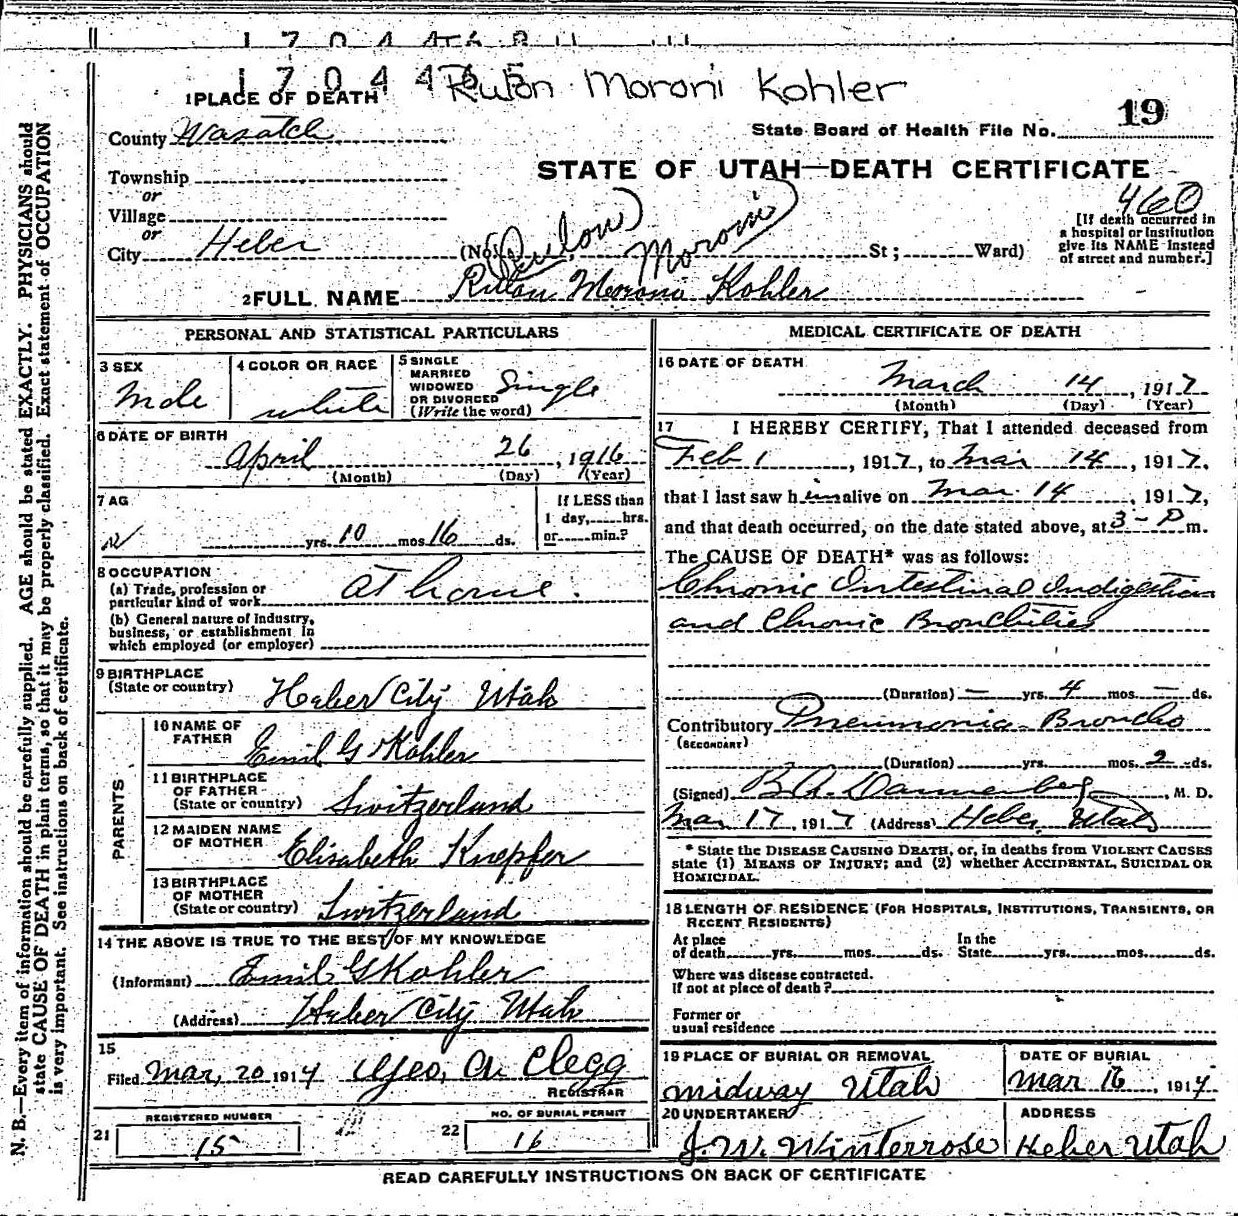 1 7 0 4 4
Rulon Moroni Kohler
1 PLACE OF DEATH
County Wasatch
State Board of Health File No. 19
Township
or
Village
or
City Heber
STATE OF UTAH—DEATH CERTIFICATE
460
[If death occurred in
a hospital or institution
give its NAME instead
of street and number.]
(No. St; Ward)
Rulon Moroni
2 FULL NAME Rulon Moroni Kohler
PERSONAL AND STATISTICAL PARTICULARS
3 SEX
Male
4 COLOR OR RACE
white
5 SINGLE
MARRIED
WIDOWED
OR DIVORCED
(Write the word)
Single
6 DATE OF BIRTH
April 26, 1916
(Month) (Day) (Year)
7 AG
yrs. 10 mos. 16 ds.
If LESS than
1 day, hrs.
or min.?
8 OCCUPATION
(a) Trade, profession or
particular kind of work at home.
(b) General nature of industry,
business, or establishment in
which employed (or employer)
9 BIRTHPLACE
(State or country) Heber City Utah
PARENTS
10 NAME OF
FATHER Emil G Kohler
11 BIRTHPLACE
OF FATHER
(State or country) Switzerland
12 MAIDEN NAME
OF MOTHER Elisabeth Knepfer
13 BIRTHPLACE
OF MOTHER
(State or country) Switzerland
14 THE ABOVE IS TRUE TO THE BEST OF MY KNOWLEDGE
(Informant) Emil G Kohler
(Address) Heber City Utah
15
Filed Mar, 20 1917 Geo, A. Clegg
REGISTRAR
REGISTERED NUMBER
21 15
NO. OF BURIAL PERMIT
22 16
MEDICAL CERTIFICATE OF DEATH
16 DATE OF DEATH
March 14, 1917
(Month) (Day) (Year)
17 I HEREBY CERTIFY, That I attended deceased from
Feb 1, 1917, to Mar 14, 1917.
that I last saw him alive on Mar 14, 1917,
and that death occurred, on the date stated above, at 3-P m.
The CAUSE OF DEATH* was as follows:
Chronic Intestinal Indigestion
and Chronic Bronchities
(Duration) — yrs. 4 mos. — ds.
Contributory Pneumonia-Broncho
(SECONDARY)
(Duration) yrs. mos. 2 ds.
(Signed) B.A. Dannenberg, M. D.
Mar 17, 1917 (Address) Heber, Utah
* State the DISEASE CAUSING DEATH, or, in deaths from VIOLENT CAUSES
state (1) MEANS OF INJURY; and (2) whether ACCIDENTAL, SUICIDAL OR
HOMICIDAL.
18 LENGTH OF RESIDENCE (FOR HOSPITALS, INSTITUTIONS, TRANSIENTS, OR
RECENT RESIDENTS)
At place
of death yrs. mos. ds.
In the
State yrs. mos. ds.
Where was disease contracted.
If not at place of death?
Former or
usual residence
19 PLACE OF BURIAL OR REMOVAL
Midway Utah
DATE OF BURIAL
Mar 16, 1917
20 UNDERTAKER
J. W. Winterrose
ADDRESS
Heber Utah
READ CAREFULLY INSTRUCTIONS ON BACK OF CERTIFICATE
N. B.—Every item of information should be carefully supplied. AGE should be stated EXACTLY. PHYSICIANS should
state CAUSE OF DEATH in plain terms, so that it may be properly classified. Exact statement of OCCUPATION
is very important. See instructions on back of certificate.